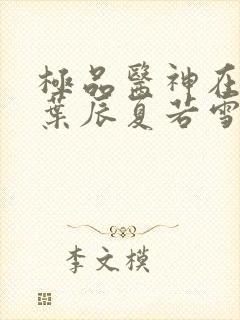 極品醫神在
葉辰夏若雪
李文模